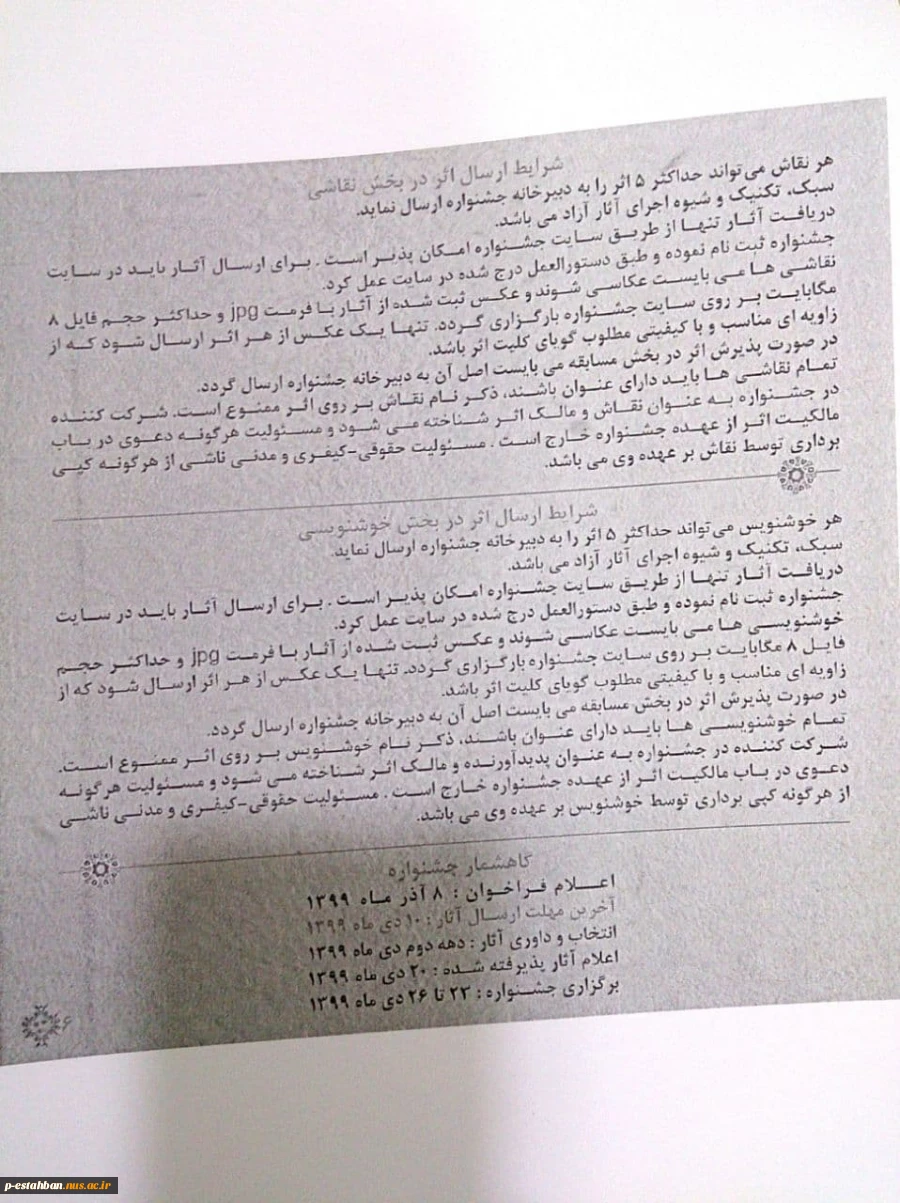 شرایط ارسال اثر در بخش نقاشی
هر نقاش می‌تواند حداکثر ۵ اثر را به دبیرخانه جشنواره ارسال نماید.
سبک، تکنیک و شیوه اجرای آثار آزاد می باشد.
دریافت آثار تنها از طریق سایت جشنواره امکان پذیر است . برای ارسال آثار باید در سایت
جشنواره ثبت نام نموده و طبق دستورالعمل درج شده در سایت عمل کرد.
نقاشی ها می بایست عکاسی شوند و عکس ثبت شده از آثار با فرمت jpg و حداکثر حجم فایل ۸
مگابایت بر روی سایت جشنواره بارگزاری گردد. تنها یک عکس از هر اثر ارسال شود که از
زاویه ای مناسب و با کیفیتی مطلوب گویای کلیت اثر باشد.
در صورت پذیرش اثر در بخش مسابقه می بایست اصل آن به دبیرخانه جشنواره ارسال گردد.
تمام نقاشی ها باید دارای عنوان باشند، ذکر نام نقاش بر روی اثر ممنوع است. شرکت کننده
در جشنواره به عنوان نقاش و مالک اثر شناخته می شود و مسئولیت هرگونه دعوی در باب
مالکیت اثر از عهده جشنواره خارج است . مسئولیت حقوقی-کیفری و مدنی ناشی از هرگونه کپی
برداری توسط نقاش بر عهده وی می باشد.
شرایط ارسال اثر در بخش خوشنویسی
هر خوشنویس می‌تواند حداکثر ۵ اثر را به دبیرخانه جشنواره ارسال نماید.
سبک، تکنیک و شیوه اجرای آثار آزاد می باشد.
دریافت آثار تنها از طریق سایت جشنواره امکان پذیر است . برای ارسال آثار باید در سایت
جشنواره ثبت نام نموده و طبق دستورالعمل درج شده در سایت عمل کرد.
خوشنویسی ها می بایست عکاسی شوند و عکس ثبت شده از آثار با فرمت jpg و حداکثر حجم
فایل ۸ مگابایت بر روی سایت جشنواره بارگزاری گردد. تنها یک عکس از هر اثر ارسال شود که از
زاویه ای مناسب و با کیفیتی مطلوب گویای کلیت اثر باشد.
در صورت پذیرش اثر در بخش مسابقه می بایست اصل آن به دبیرخانه جشنواره ارسال گردد.
تمام خوشنویسی ها باید دارای عنوان باشند، ذکر نام خوشنویس بر روی اثر ممنوع است.
شرکت کننده در جشنواره به عنوان پدیدآورنده و مالک اثر شناخته می شود و مسئولیت هرگونه
دعوی در باب مالکیت اثر از عهده جشنواره خارج است . مسئولیت حقوقی-کیفری و مدنی ناشی
از هرگونه کپی برداری توسط خوشنویس بر عهده وی می باشد.
گاهشمار جشنواره
اعلام فراخوان : ۸ آذر ماه ۱۳۹۹
آخرین مهلت ارسال آثار : ۱۰ دی ماه ۱۳۹۹
انتخاب و داوری آثار : دهه دوم دی ماه ۱۳۹۹
اعلام آثار پذیرفته شده : ۲۰ دی ماه ۱۳۹۹
برگزاری جشنواره : ۲۳ تا ۲۶ دی ماه ۱۳۹۹
۶
p-estahban.nus.ac.ir